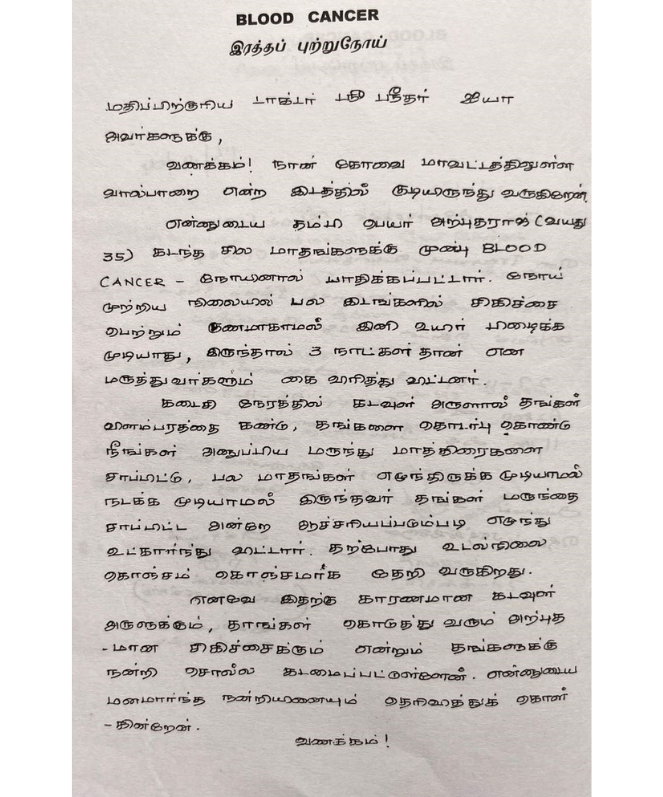 BLOOD CANCER
இரத்தப் புற்றுநோய்
மதிப்பிற்குரிய டாக்டர் ஐயா
அவர்களுக்கு,
வணக்கம்! நான் கோவை மாவட்டத்திலுள்ள
வால்பாறை என்ற இடத்தில் குடியிருந்து வருகிறேன்.
என்னுடைய தம்பி பெயர் அற்புதராஜ் (வயது
35) கடந்த சில மாதங்களுக்கு முன்பு BLOOD
CANCER - நோயினால் பாதிக்கப்பட்டார். நோய்
முற்றிய நிலையில் பல இடங்களில் சிகிச்சை
பெற்றும் குணமாகாமல் இனி உயிர் பிழைக்க
முடியாது, இருந்தால் 3 நாட்கள் தான் என
மருத்துவர்களும் கை விரித்து விட்டனர்.
கடைசி நேரத்தில் கடவுள் அருளால் தங்கள்
விளம்பரத்தை கண்டு, தங்களை தொடர்பு கொண்டு
நீங்கள் அனுப்பிய மருந்து மாத்திரைகளை
சாப்பிட்டு, பல மாதங்கள் எழுந்திருக்க முடியாமல்
நடக்க முடியாமல் இருந்தவர் தங்கள் மருந்தை
சாப்பிட்ட அன்றே ஆச்சரியப்படும்படி எழுந்து
உட்கார்ந்து விட்டார். தற்போது உடல்நிலை
கொஞ்சம் கொஞ்சமாக தேறி வருகிறது.
எனவே இதற்கு காரணமான கடவுள்
அருளுக்கும், தாங்கள் கொடுத்து வரும் அற்புத
-மான சிகிச்சைக்கும் என்றும் தங்களுக்கு
நன்றி சொல்ல கடமைப்பட்டுள்ளேன். என்னுடைய
மனமார்ந்த நன்றியினையும் தெரிவித்துக் கொள்
-கின்றேன்.
வணக்கம்!